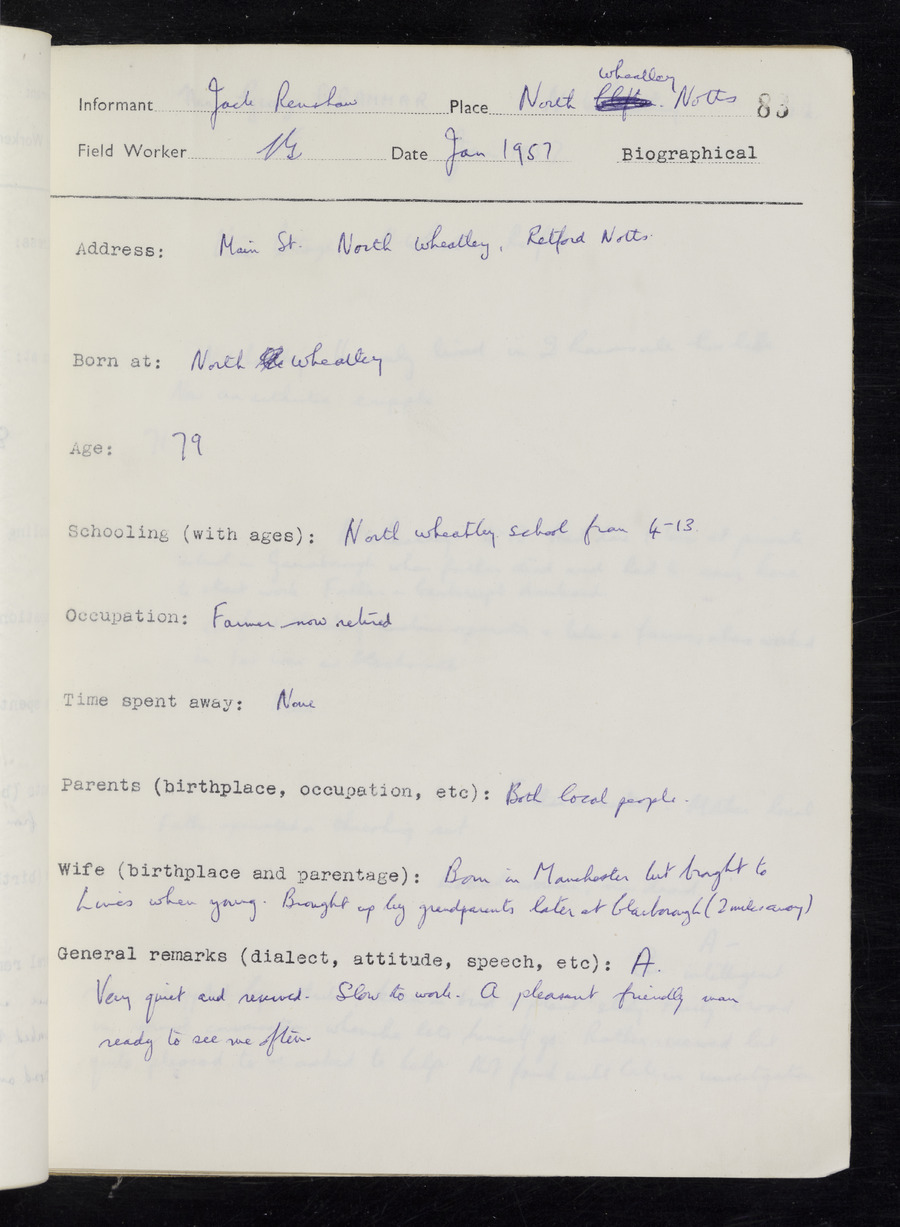 Informant Jack Renshaw Place North Wheatley Notts 83
Field Worker Date Jan 1957 Biographical
Address: Main St. North Wheatley, Retford Notts.
Born at: North Wheatley
Age: 79
Schooling (with ages): North Wheatley school from 4-13
Occupation: Farmer now retired
Time spent away: None
Parents (birthplace, occupation, etc): Both local people.
Wife (birthplace and parentage): Born in Manchester but brought to
Lincs when young. Brought up by grandparents later at Clarborough (2 miles away)
General remarks (dialect, attitude, speech, etc): A.
Very quiet and reserved. Slow to work. A pleasant friendly man
ready to see me often.